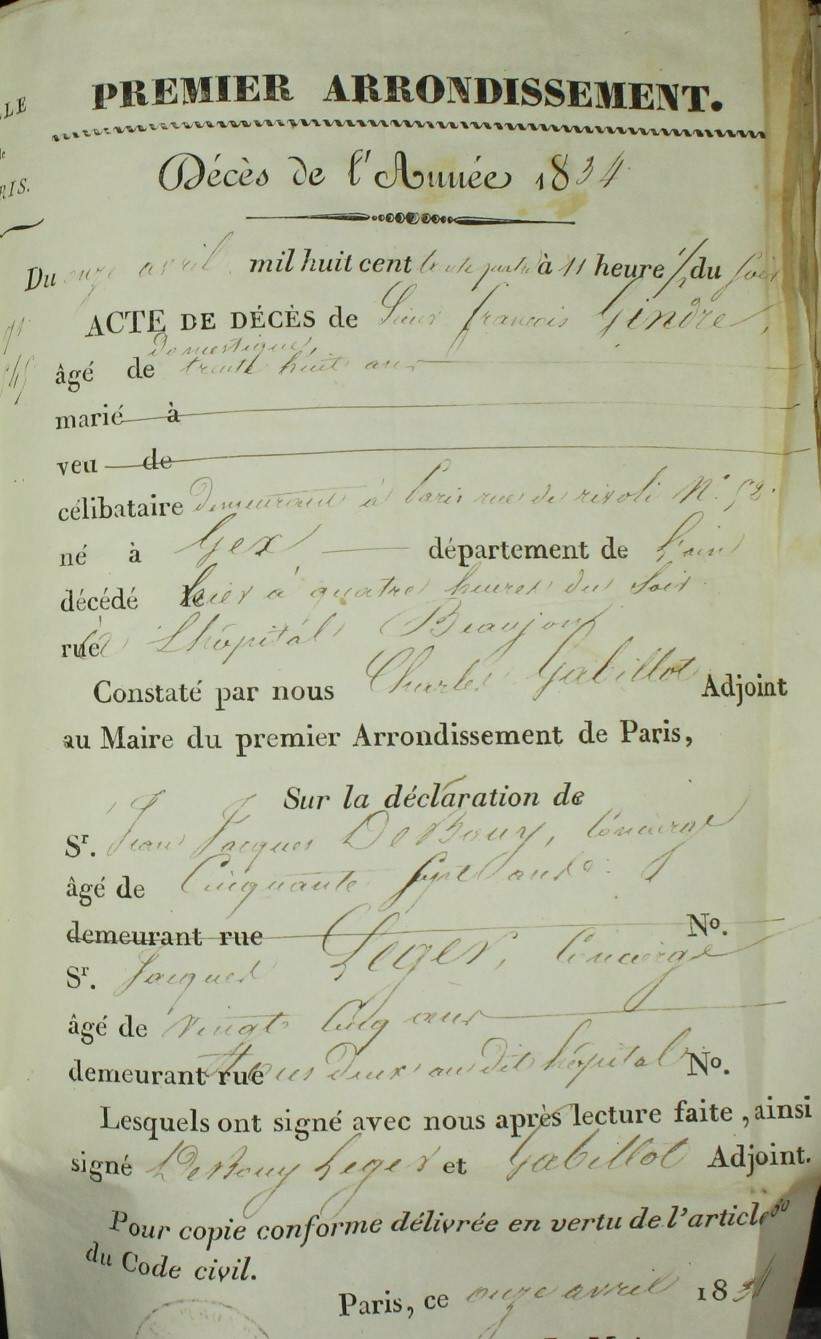 LLE
PREMIER ARRONDISSEMENT.
RIS.
Décès de l'Année 1834
Du onze avril mil huit cent trente quatre à 11 heure 1/2 du soir
ACTE DE DÉCÈS de Sieur françois Gindre,
domestique,
âgé de trente huit ans
marié à
veu de
célibataire demeurant à Paris rue de rivoli N.° 52.
né à Gex département de L'ain
décédé hier à quatre heures du soir
rue à L'hôpital Beaujon
Constaté par nous Charles Gabillot Adjoint
au Maire du premier Arrondissement de Paris,
Sur la déclaration de
Sr. Jean Jacques DeBouy, Concierge
âgé de Cinquante Sept ans
demeurant rue No.
Sr. Jacques Leger, Concierge
âgé de vingt Cinq ans
demeurant rue tous deux au dit hôpital No.
Lesquels ont signé avec nous après lecture faite, ainsi
signé DeBouy Leger et Gabillot Adjoint.
Pour copie conforme délivrée en vertu de l'article
du Code civil.
Paris, ce onze avril 1834